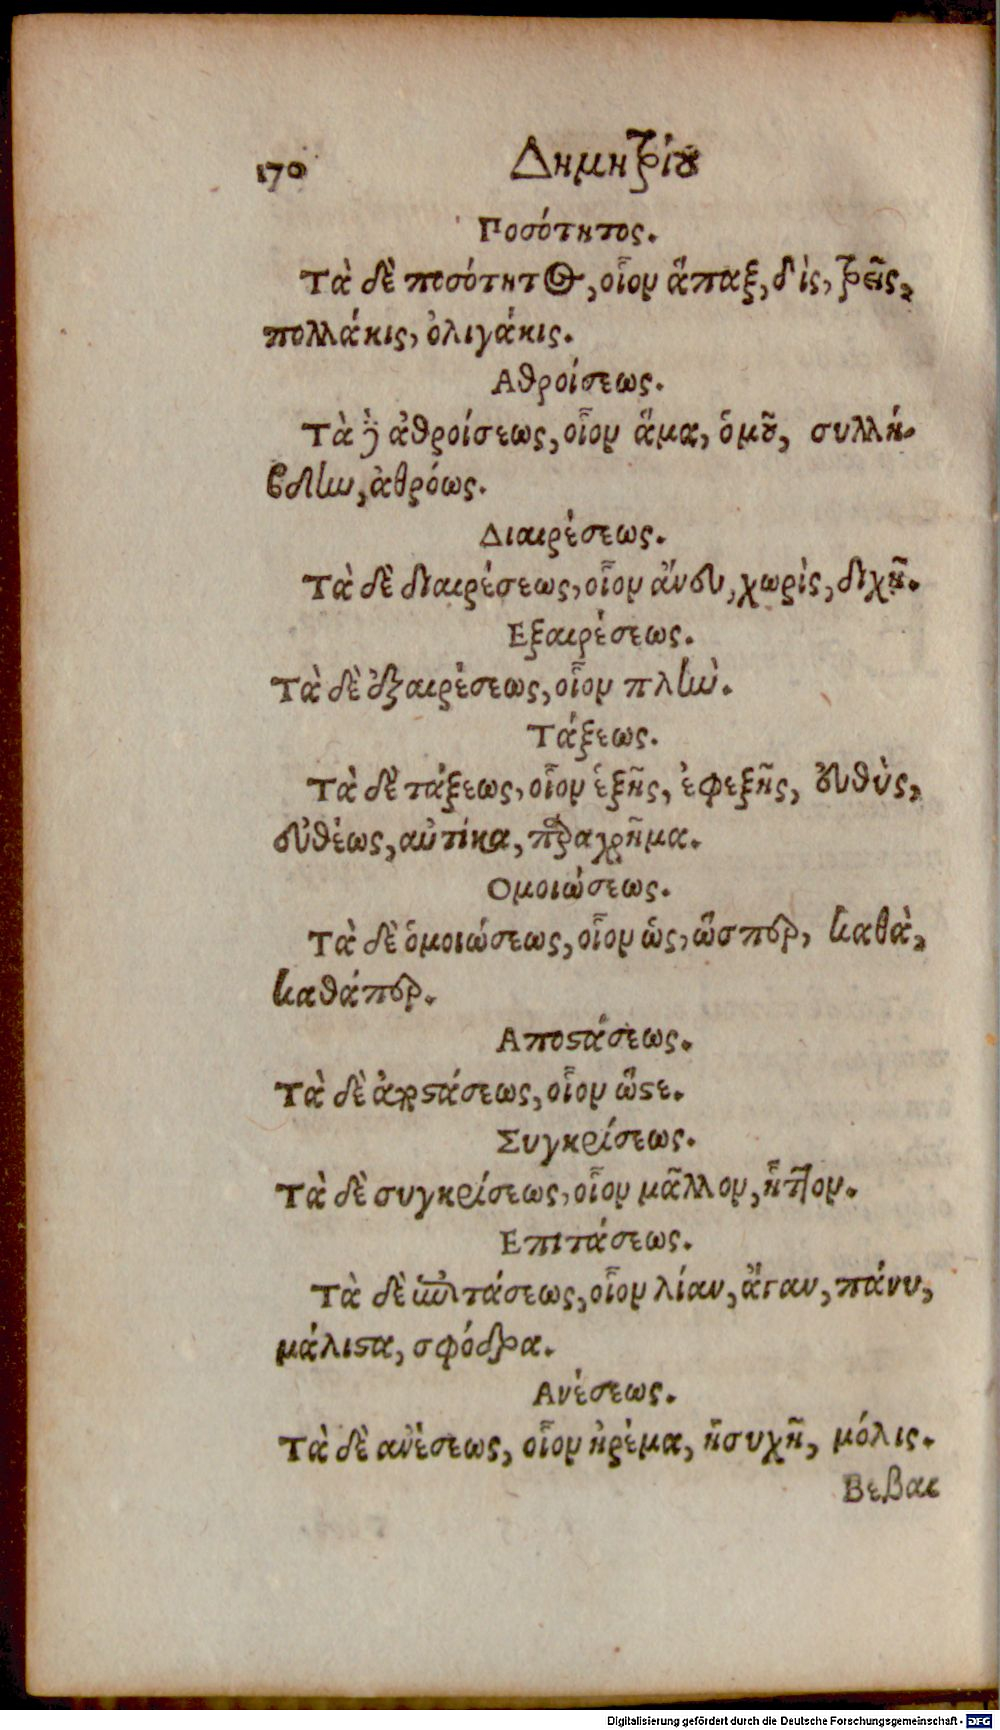 170 Δημητρίου
Ποσότητος.
Τὰ δὲ ποσότητος, οἷον ἅπαξ, δὶς, τρεῖς,
πολλάκις, ὀλιγάκις.
Αθροίσεως.
Τὰ δὲ ἀθροίσεως, οἷον ἅμα, ὁμοῦ, συλλή-
βδην, ἀθρόως.
Διαιρέσεως.
Τὰ δὲ διαιρέσεως, οἷον ἄνευ, χωρὶς, διχῆ.
Εξαιρέσεως.
Τὰ δὲ ἐξαιρέσεως, οἷον πλὴν.
Τάξεως.
Τὰ δὲ τάξεως, οἷον ἑξῆς, ἐφεξῆς, εὐθὺς,
εὐθέως, αὐτίκα, παραχρῆμα.
Ομοιώσεως.
Τὰ δὲ ὁμοιώσεως, οἷον ὡς, ὥσπερ, καθὰ,
καθάπερ.
Αποστάσεως.
Τὰ δὲ ἀποστάσεως, οἷον ὥστε.
Συγκρίσεως.
Τὰ δὲ συγκρίσεως, οἷον μᾶλλον, ἧττον.
Επιτάσεως.
Τὰ δὲ ἐπιτάσεως, οἷον λίαν, ἄγαν, πάνυ,
μάλιστα, σφόδρα.
Ανέσεως.
Τὰ δὲ ἀνέσεως, οἷον ἠρέμα, ἡσυχῆ, μόλις.
Βεβαι
Digitalisierung gefördert durch die Deutsche Forschungsgemeinschaft - DFG